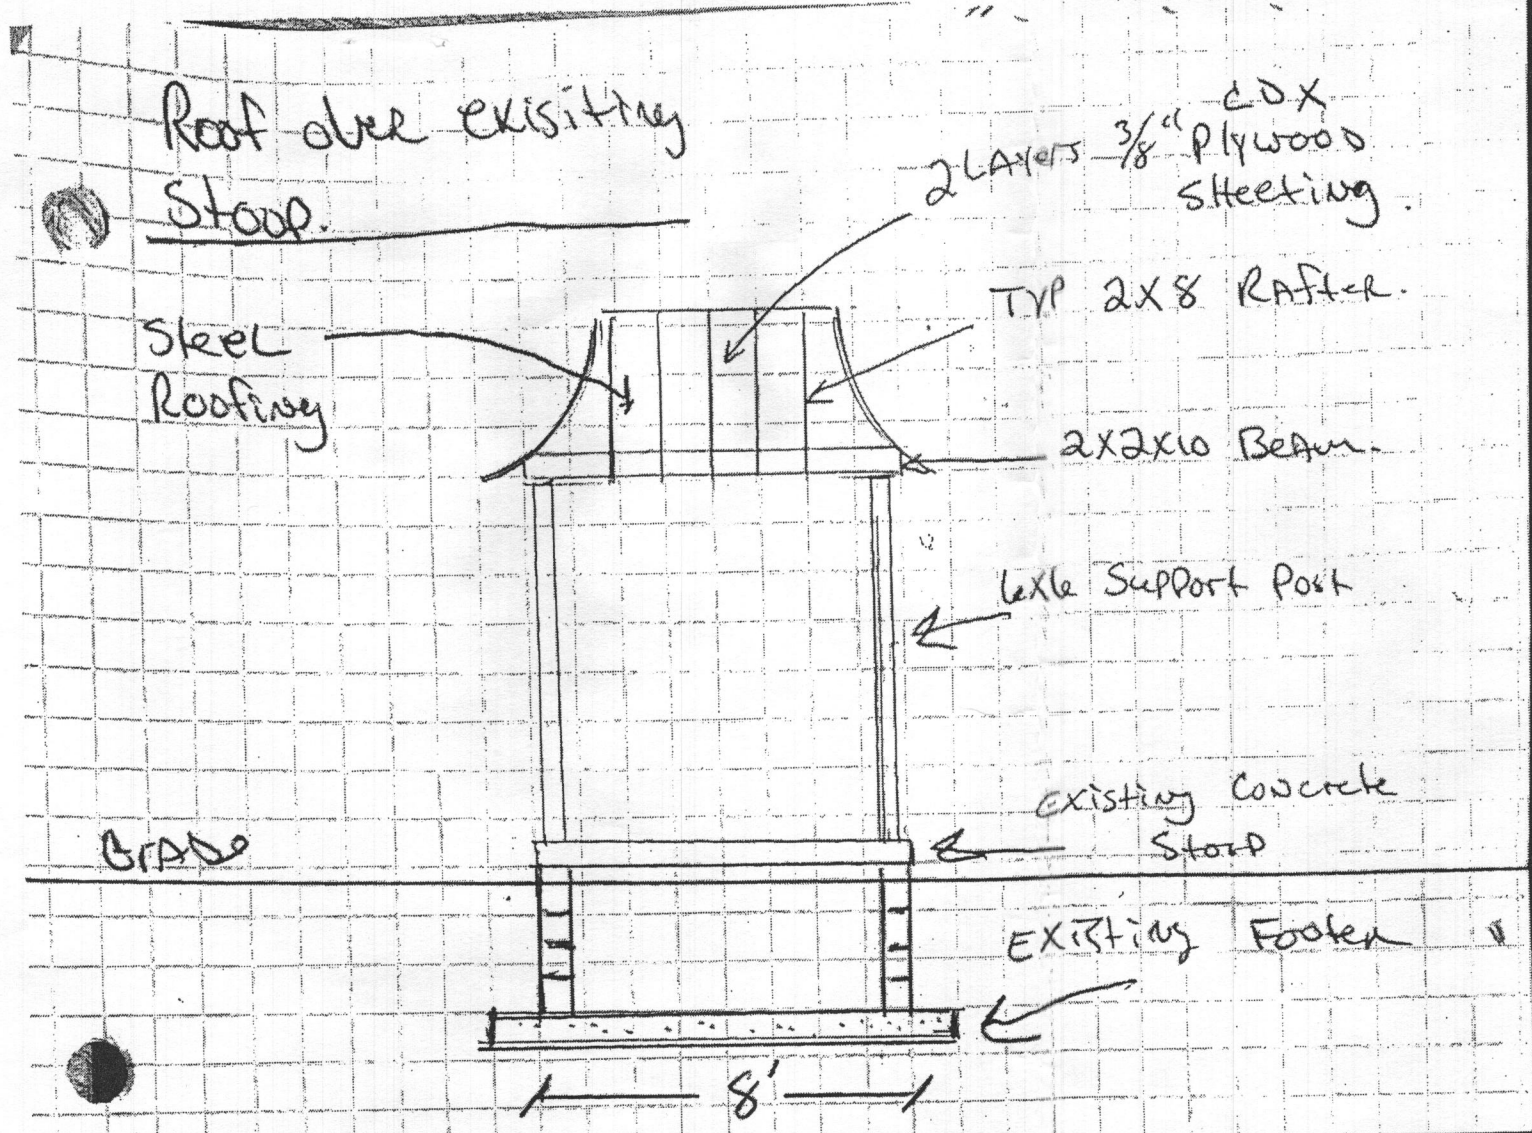 Roof over exisiting
Stoop.
2 LAyers 3/8" CDX
Plywood
SHeeting.
Typ 2X8 RAfter.
Steel
Roofing
2X2X10 BeAm.
6x6 Support Post
Existing Concrete
Stoop
GrADe
EXISting Footer
8'